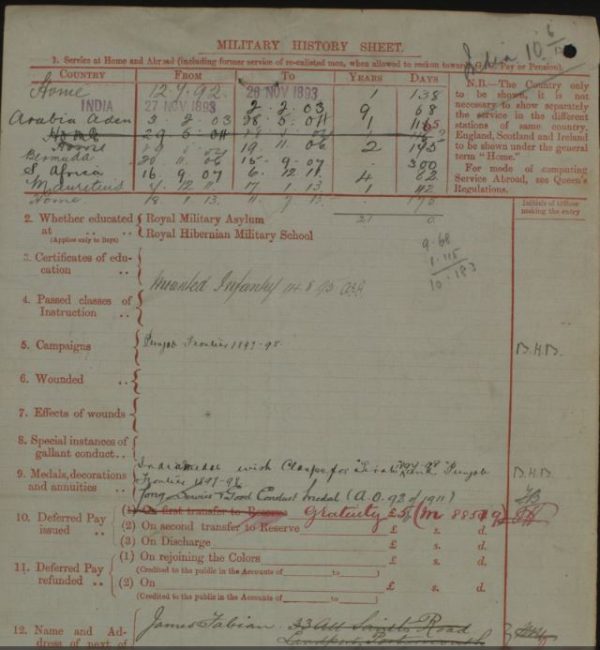 India 10 6
MILITARY HISTORY SHEET.
1. Service at Home and Abroad (including former service of re-enlisted men, when allowed to reckon towards G.C. Pay or Pension).
COUNTRY FROM TO YEARS DAYS
Home 12.7.92 26 NOV 1893 1 138
INDIA 27 NOV 1893 2.2.03 9 68
Arabia Aden 3.2.03 28.5.04 1
Home 29 5 04
Home 19 11 06 2
Bermuda 20 11 06 15.9.07 300
S. Africa 16.9.07 6.12.11 4 82
Mauritius 7.12.11 17.1.13 1 42
Home 18 1 13
21
N.B.—The Country only
to be shown, it is not
necessary to show separately
the service in the different
stations of same country,
England, Scotland and Ireland
to be shown under the general
term "Home."
For mode of computing
Service Abroad, see Queen's
Regulations.
Initials of officer
making the entry
2. Whether educated at (Applies only to Boys)
Royal Military Asylum
Royal Hibernian Military School
9.68
1.115
10.183
3. Certificates of education
Mounted Infantry
4. Passed classes of Instruction
5. Campaigns Punjab Frontier 1897-98 B.H.B.
6. Wounded
7. Effects of wounds
8. Special instances of gallant conduct
9. Medals, decorations and annuities
India medal with Clasps for "Tirah 1897-98" "Punjab
Frontier 1897-98 B.H.B.
Long Service & Good Conduct Medal (A.O. 92 of 1911)
10. Deferred Pay issued
(1) On first transfer to Reserve Gratuity £5
(2) On second transfer to Reserve £ s. d.
(3) On Discharge £ s. d.
11. Deferred Pay refunded
(1) On rejoining the Colors £ s. d.
(Credited to the public in the Accounts of to )
(2) On £ s. d.
(Credited to the public in the Accounts of to )
12. Name and Address of next of
James Fabian 33 All Saints Road
Landport, Portsmouth